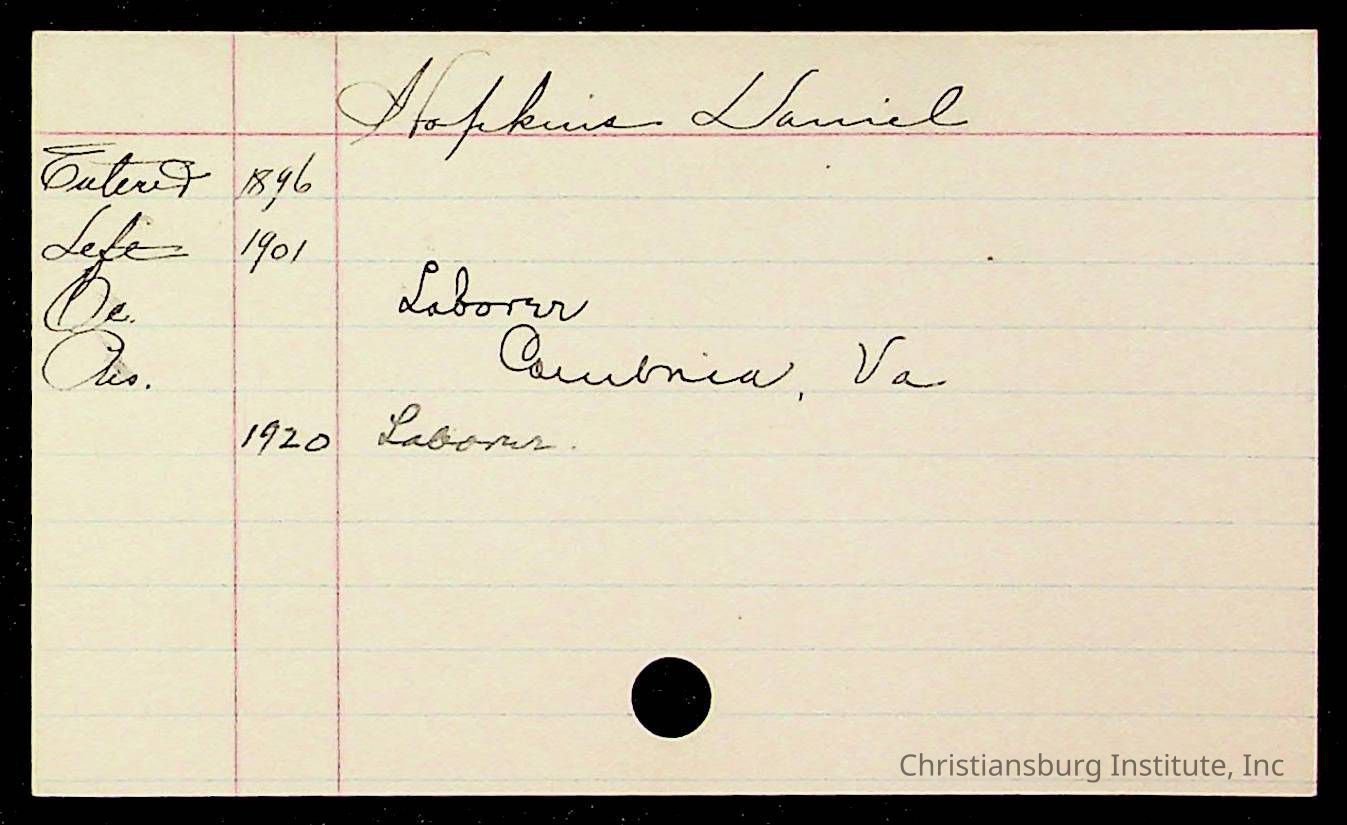 Hopkins Daniel
Entered 1896
Left 1901
Oc. Laborer
Res. Cambria, Va
1920 Laborer.
Christiansburg Institute, Inc